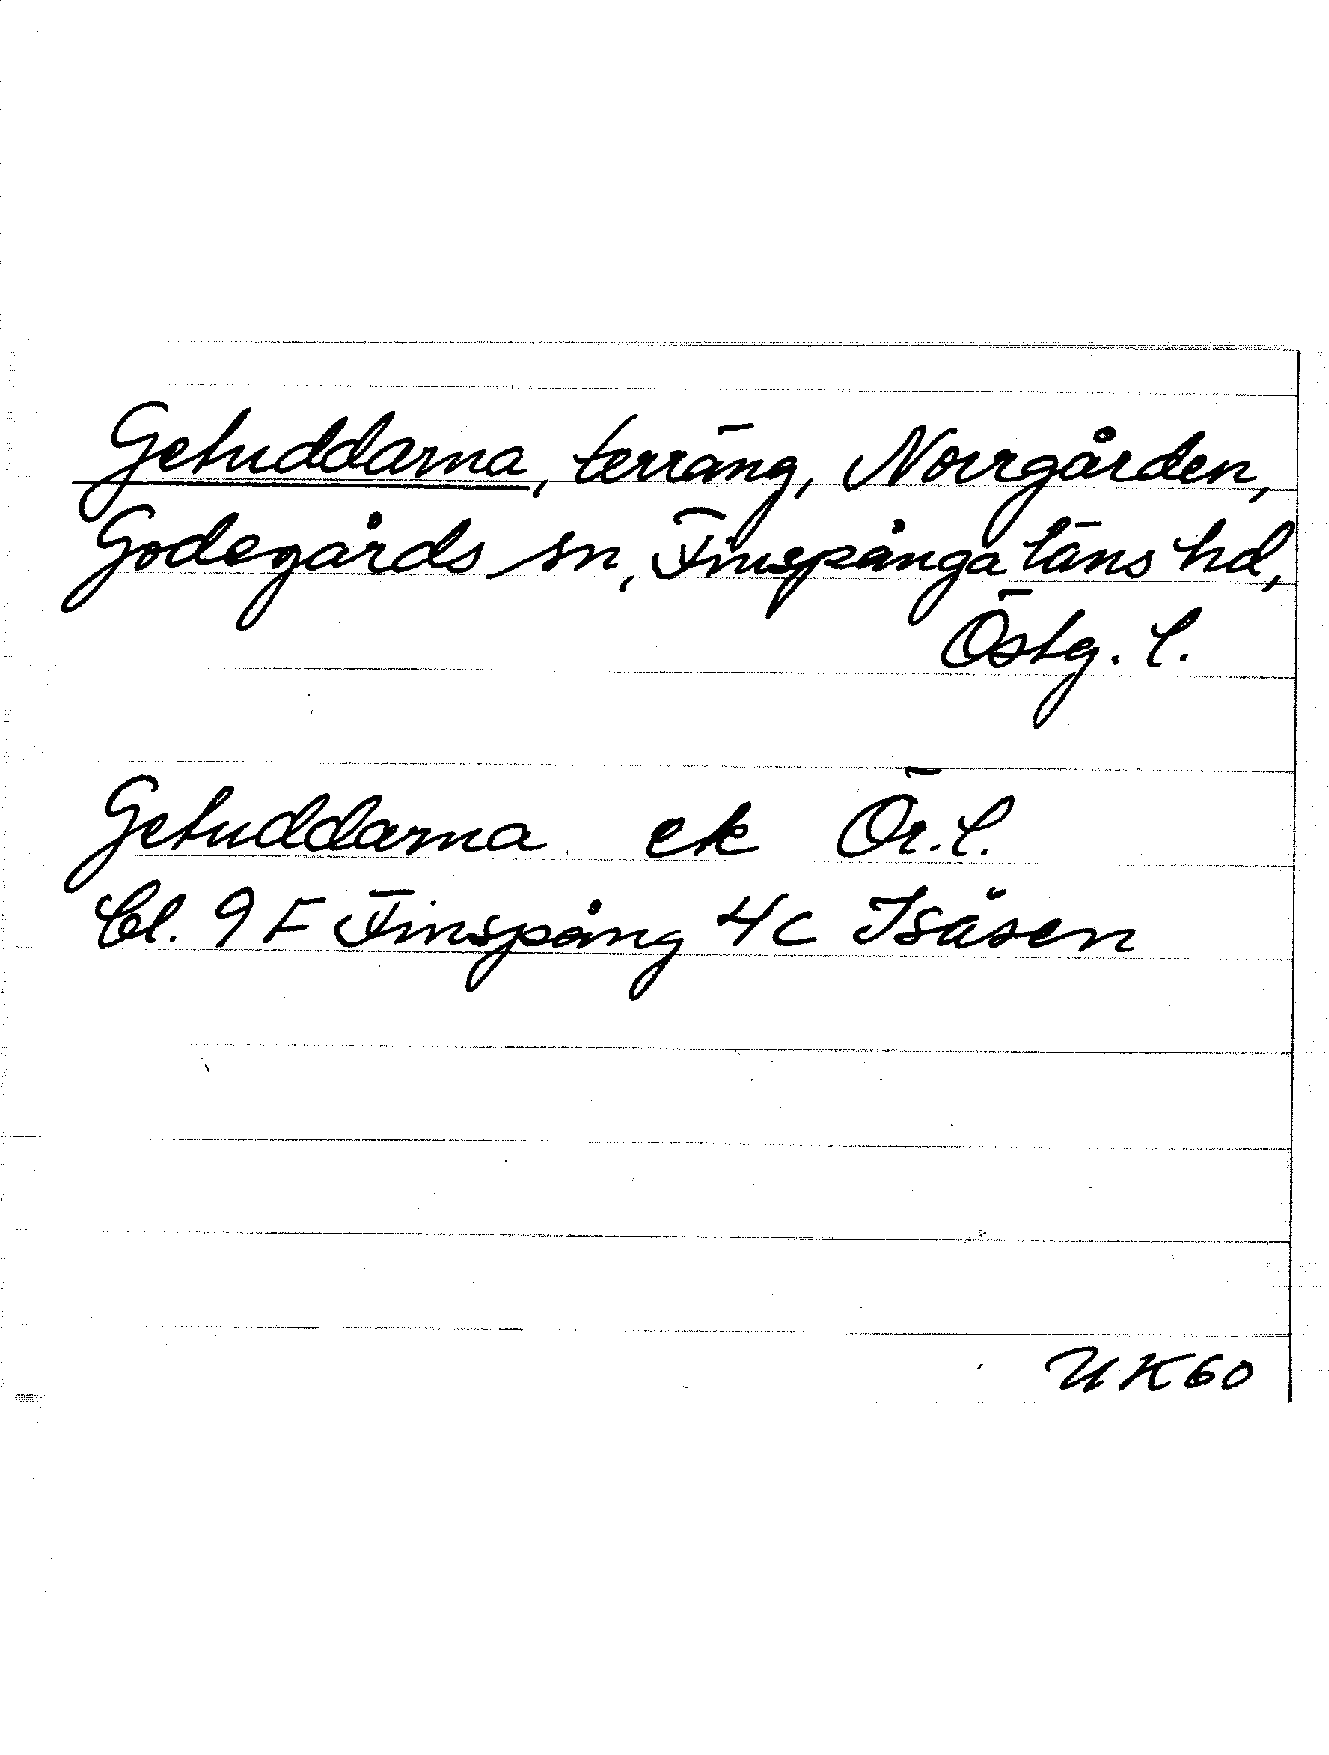 Getuddarna, terräng, Norrgården,
Godegårds sn, Finspånga läns hd,
Östg. l.
Getuddarna ek Ör. l.
Bl. 9 F Finspång 4c Isåsen
UK60